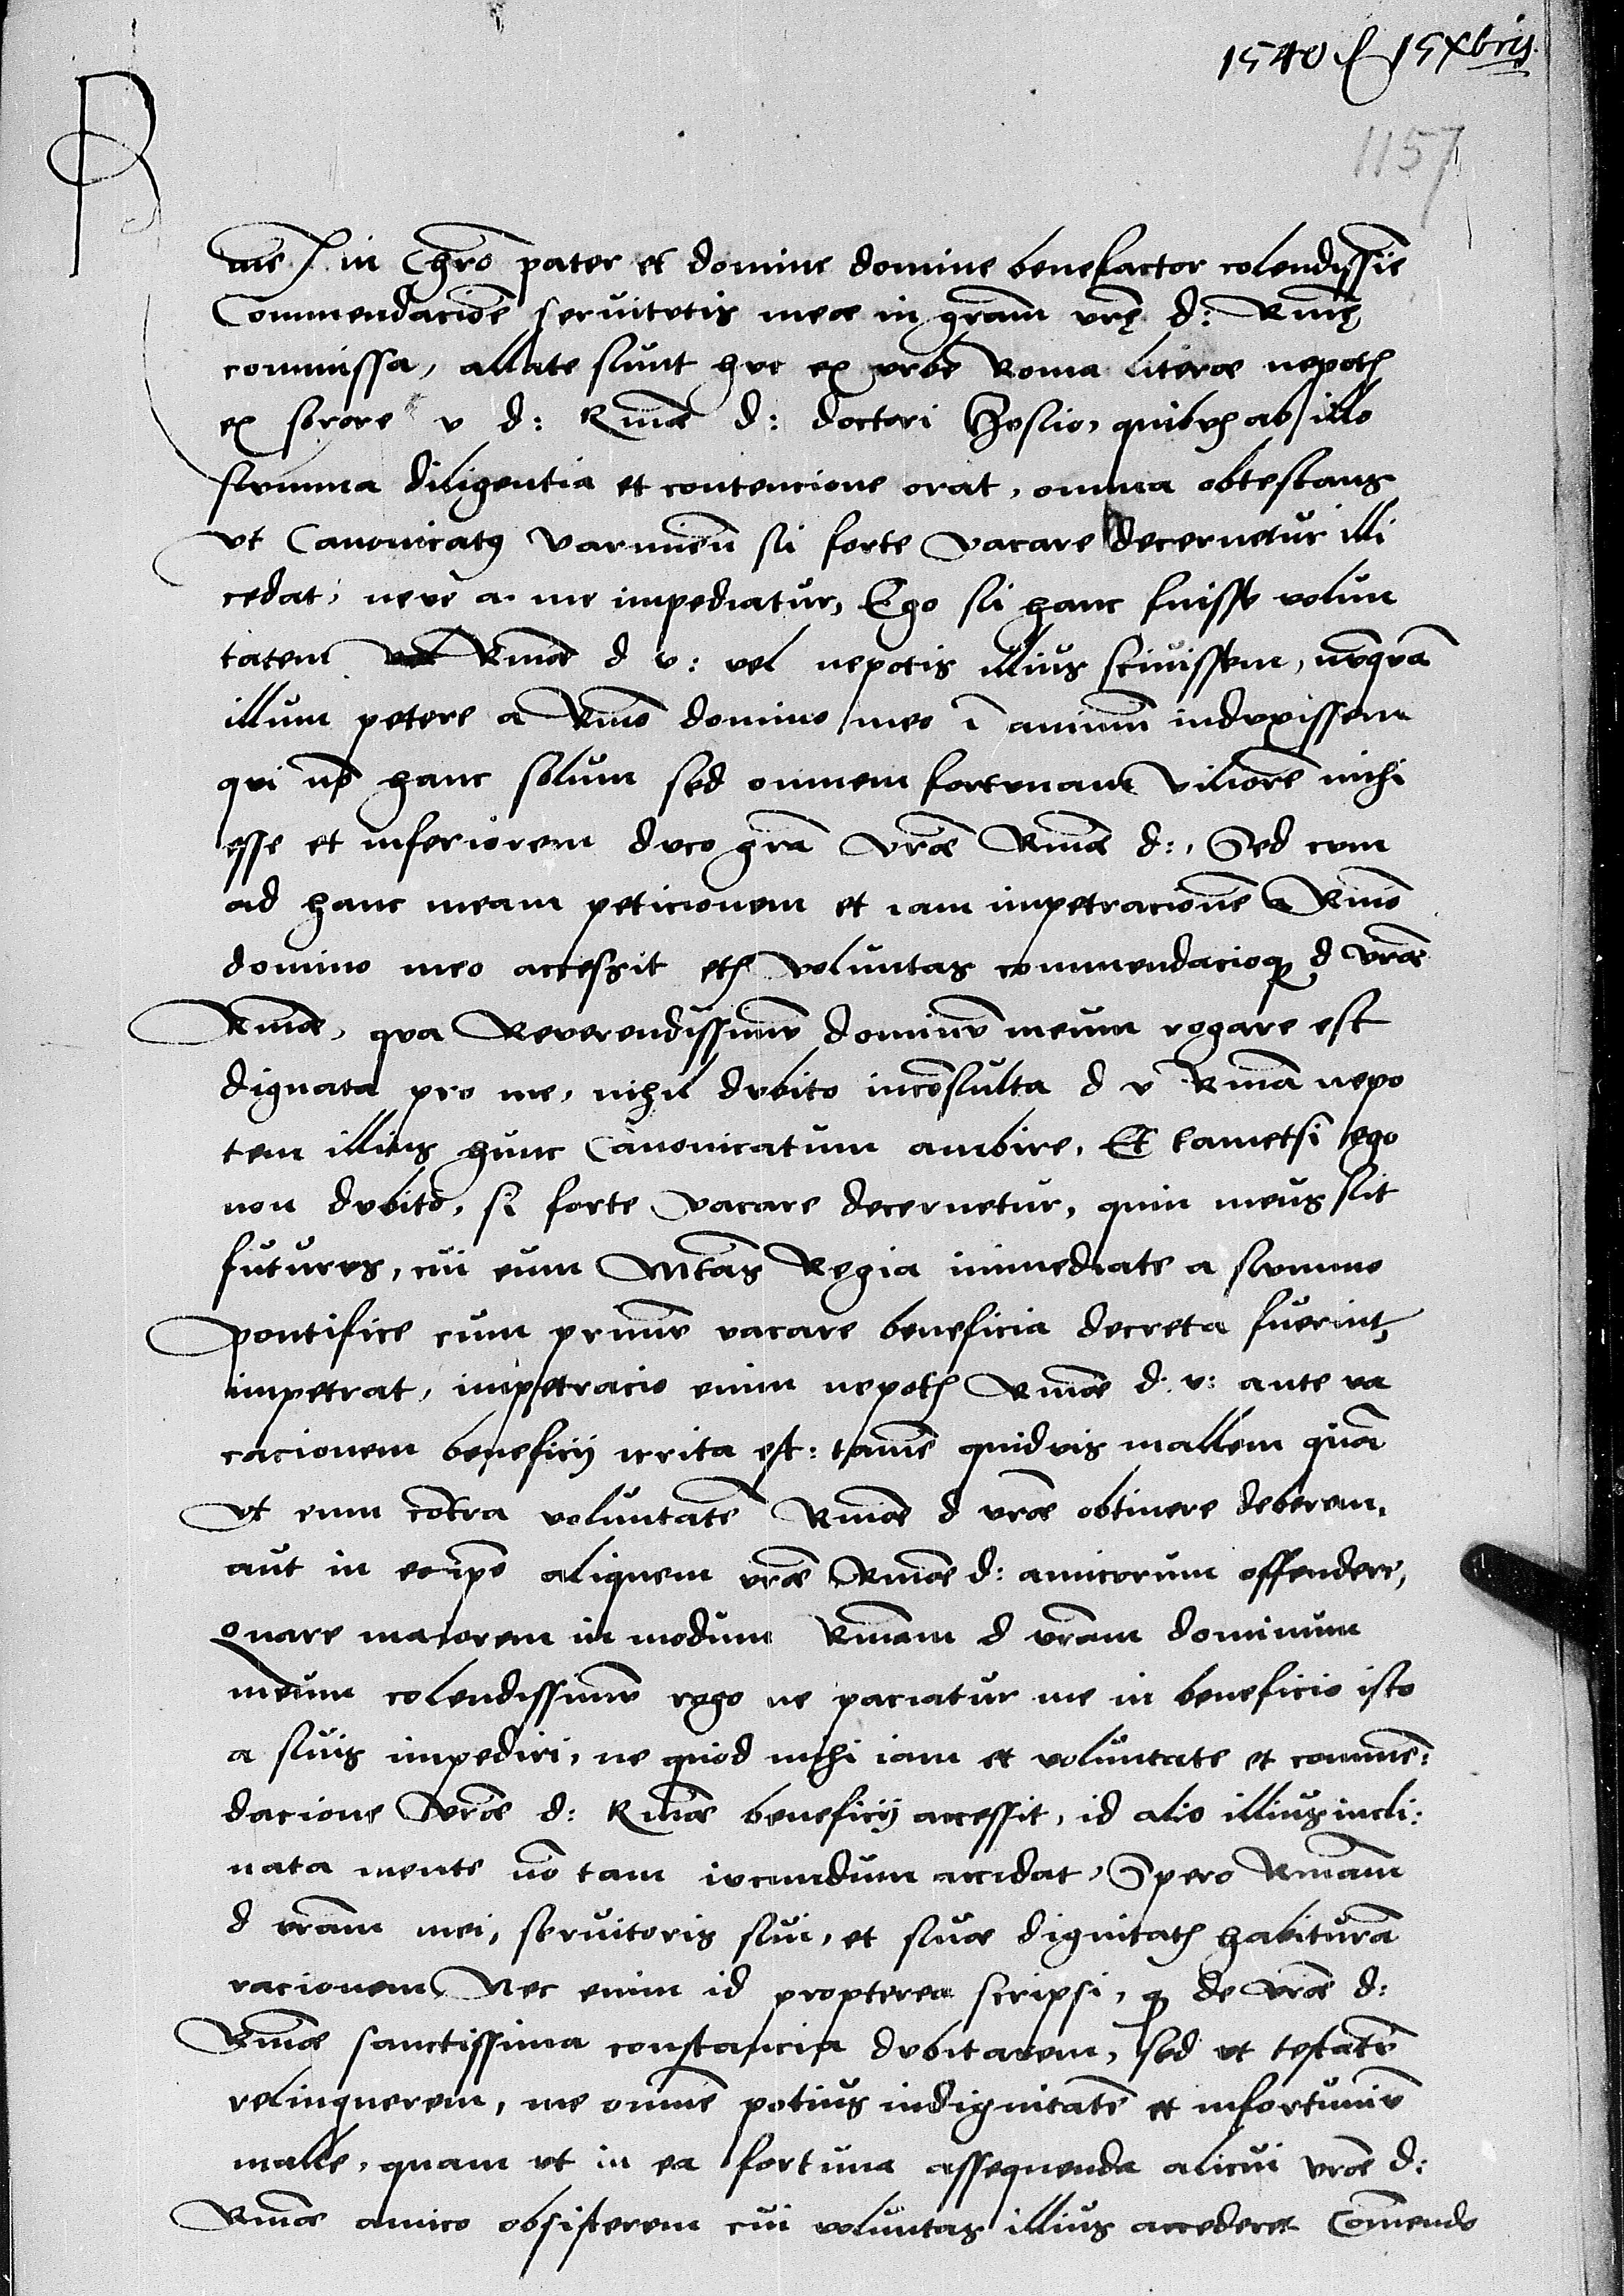 1540 15 Xbris
1157
R
me in Chro pater et domine domine benefactor colendissie
Commendacioe servitutis meae in gram vre d: Rme
commissa, allate sunt huc ex urbe Roma literae nepotis
ex sorore v d: Rmae d: doctori Hosio, quibus ab illo
summa diligentia et contencione orat, omnia obtestans
ut Canonicatus Varmien si forte vacare decernetur illi
cedat, neve a me impediatur, Ego si hanc fuisse volun
tatem Rmae d v: vel nepotis illius scivissem, nunqua
illum petere a Rmo domino meo i animum induxissem
qui no hanc solum sed omnem fortunam viliore mihi
esse et inferiorem duco gra vrae Rmae d:, Sed cum
ad hanc meam peticionem et iam impetracione a Rmo
domino meo accessit etiam voluntas commendacioque d vrae
Rmae, qua Reverendissimu dominu meum rogare est
dignata pro me, nihil dubito inconsulta d v Rma nepo
tem illius hunc Canonicatum ambire. Et tametsi ego
non dubito, si forte vacare decernetur, quin meus sit
futurus, cui eum Mtas Regia immediate a summo
pontifice cum primu vacare beneficia decreta fuerint,
impetrat, impetracio enim nepotis Rmae d. v: ante va
cacionem beneficij irrita est: tame quidvis mallem qua
ut eum contra voluntate Rmae d vrae obtinere deberem,
aut in eo ipso aliquem vrae Rmae d: amicorum offendere,
Quare maiorem in modum Rmam d vram dominum
meum colendissimu rogo ne paciatur me in beneficio isto
a suis impediri, ne quod mihi iam et voluntate et commen:
dacione vrae d: Rmae beneficij accessit, id alio illius incli:
nata mente no tam iucundum accidat, Spero Rmam
d vram mei, servitoris sui, et suae dignitatis habitura
racionem, Nec enim id propterea scripsi, quod de vrae d:
Rmae sanctissima constancia dubitarem, sed ut testatu
relinquerem, me omne potius indignitate et infortuniu
malle, quam ut in ea fortuna assequenda alicui vrae d:
Rmae amico obsisterem cui voluntas illius accederet Comendo